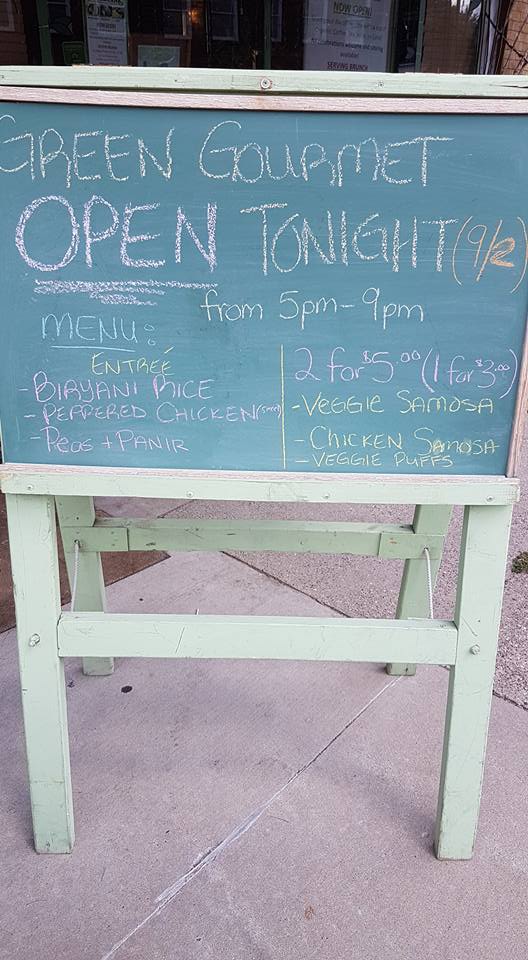 NOW OPEN!
SERVING BRUNCH
GREEN GOURMET
OPEN TONIGHT (9/2)
from 5pm-9pm
MENU:
ENTREÉ
- BIRYANI RICE
- PEPPERED CHICKEN
- PEAS + PANIR
2 for $5.00 (1 for $3.00)
- VEGGIE SAMOSA
- CHICKEN SAMOSA
- VEGGIE PUFFS